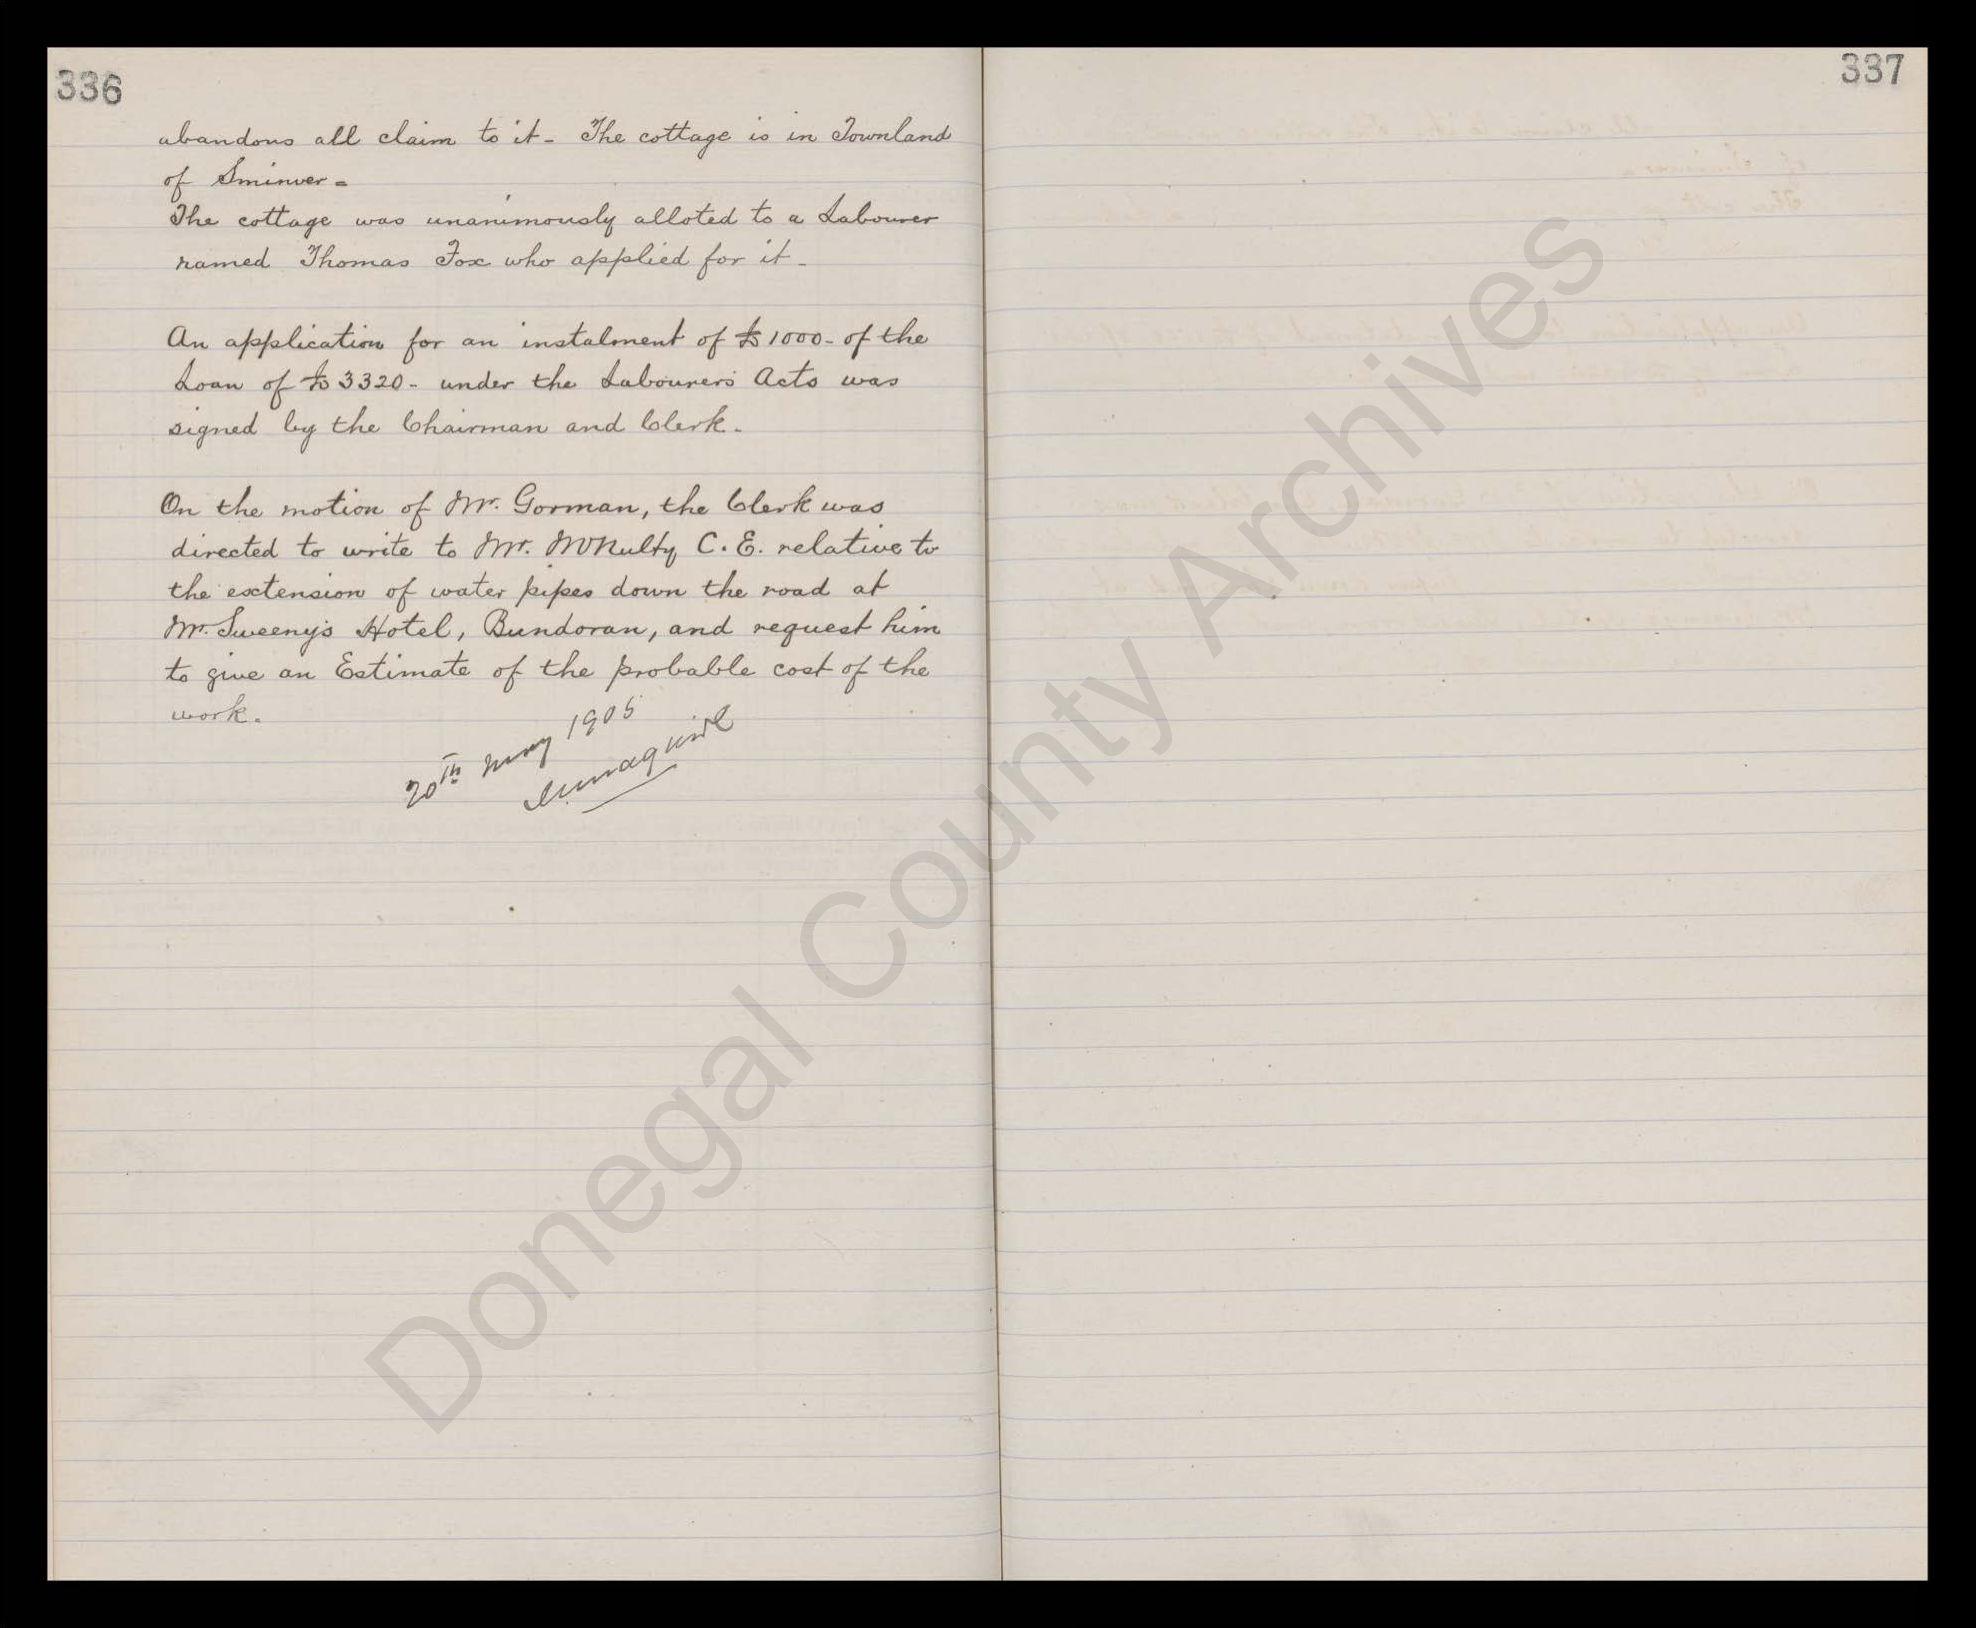 336
abandons all claim to it - The cottage is in Townland
of Sminver =
The cottage was unanimously alloted to a Labourer
named Thomas Fox who applied for it -
An application for an instalment of £1000 - of the
Loan of £3320 - under the Labourers Acts was
signed by the Chairman and Clerk.
On the motion of Mr. Gorman, the Clerk was
directed to write to Mr. McNulty C.E. relative to
the extension of water pipes down the road at
Mr. Sweeny's Hotel, Bundoran, and request him
to give an Estimate of the probable cost of the
work.
20th May 1905
337
Donegal County Archives